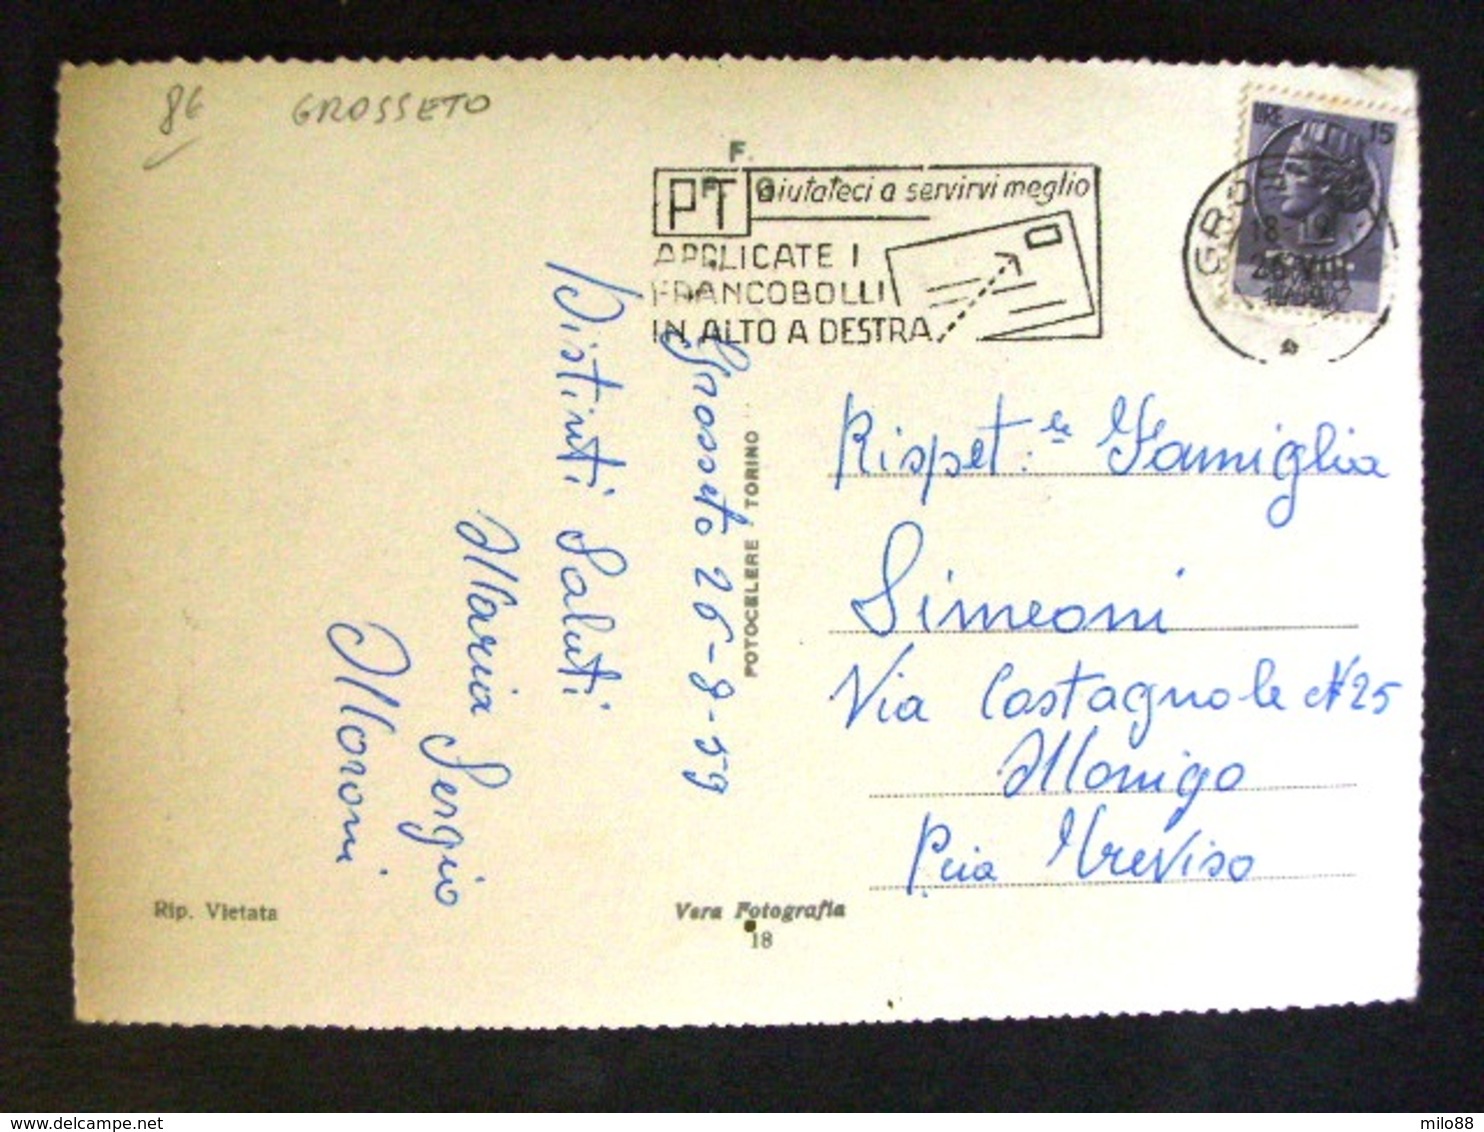 8€ GROSSETO
F.
PT Aiutateci a servirvi meglio
G
APPLICATE I
FRANCOBOLLI
IN ALTO A DESTRA
LIRE 15
18-19
26 VIII
Grosseto 26-8-59
Distinti Saluti
Maria Sergio
Moroni
FOTOCELERE TORINO
Rispet.le Famiglia
Simeoni
Via Castagnole N 25
Monigo
Pcia Treviso
Rip. Vietata
Vera Fotografia
18
milo88